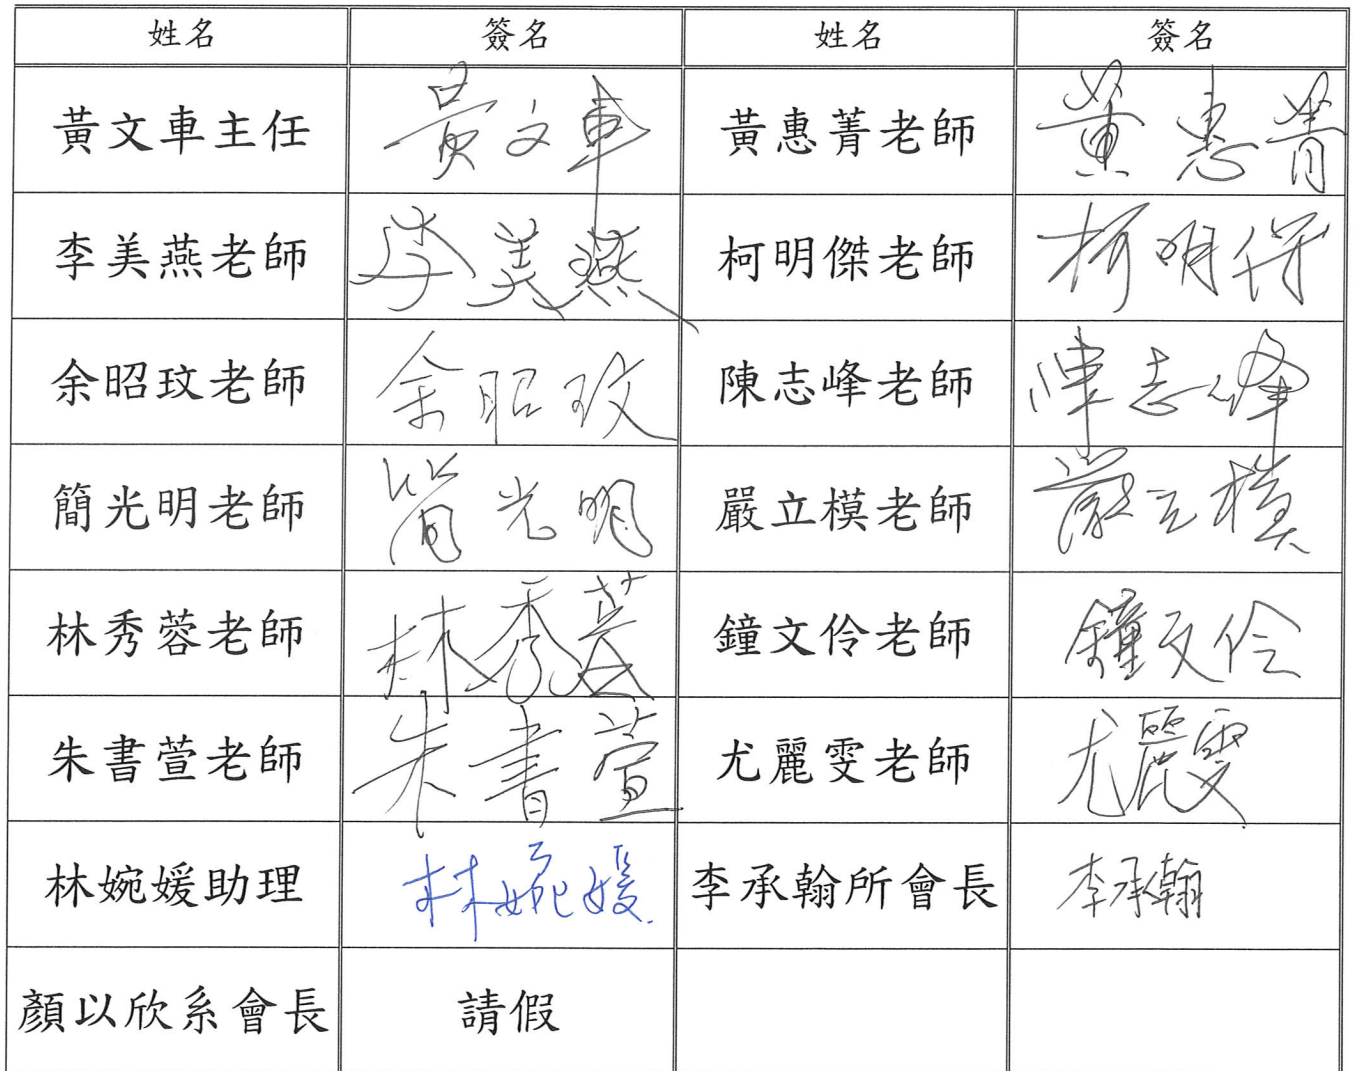 姓名 簽名 姓名 簽名
黃文車主任 黃文車 黃惠菁老師 黃惠菁
李美燕老師 李美燕 柯明傑老師 柯明傑
余昭玟老師 余昭玟 陳志峰老師 陳志峰
簡光明老師 簡光明 嚴立模老師 嚴立模
林秀蓉老師 林秀蓉 鐘文伶老師 鐘文伶
朱書萱老師 朱書萱 尤麗雯老師 尤麗雯
林婉媛助理 林婉媛 李承翰所會長 李承翰
顏以欣系會長 請假